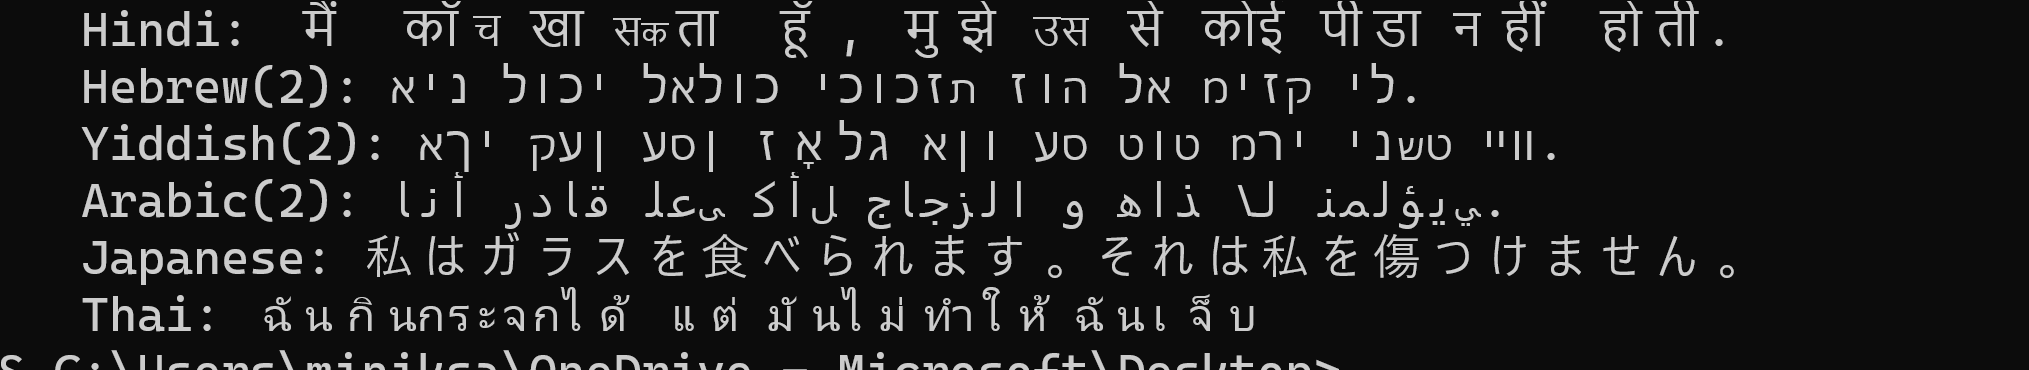 Hindi: मैं काँच खा सकता हूँ, मुझे उस से कोई पीडा नहीं होती.
Hebrew(2): אני יכול לאכול זכוכית וזה לא מזיק לי.
Yiddish(2): איך קען עסן גלאָז און עס טוט מיר נישט װײ.
Arabic(2): أنا قادر على أكل الزجاج و هذا لا يؤلمني.
Japanese: 私はガラスを食べられます。それは私を傷つけません。
Thai: ฉันกินกระจกได้ แต่มันไม่ทำให้ฉันเจ็บ
S C:\Users\miniksa\OneDrive - Microsoft\Desktop>